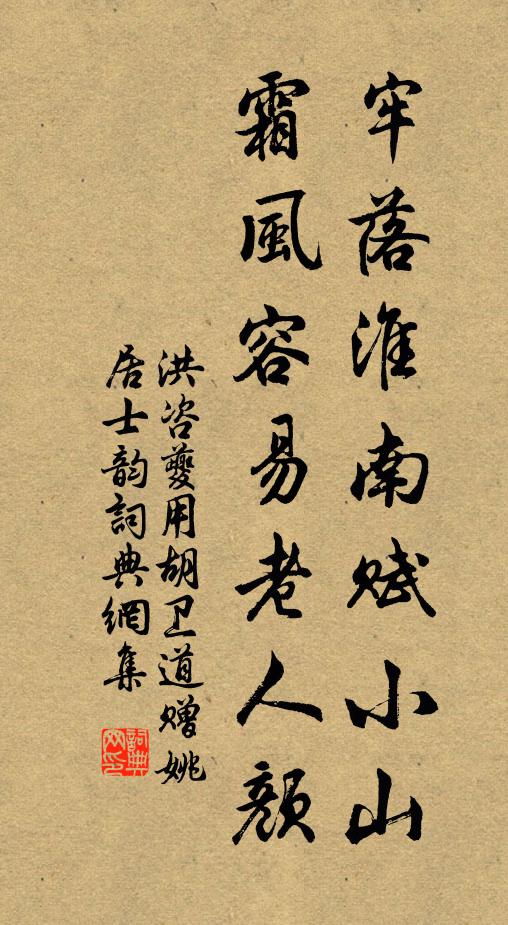 牢落淮南赋小山
霜風容易老人顔
洪咨夔用胡卫道赠姚
居士韵詞典網集
詞典網印